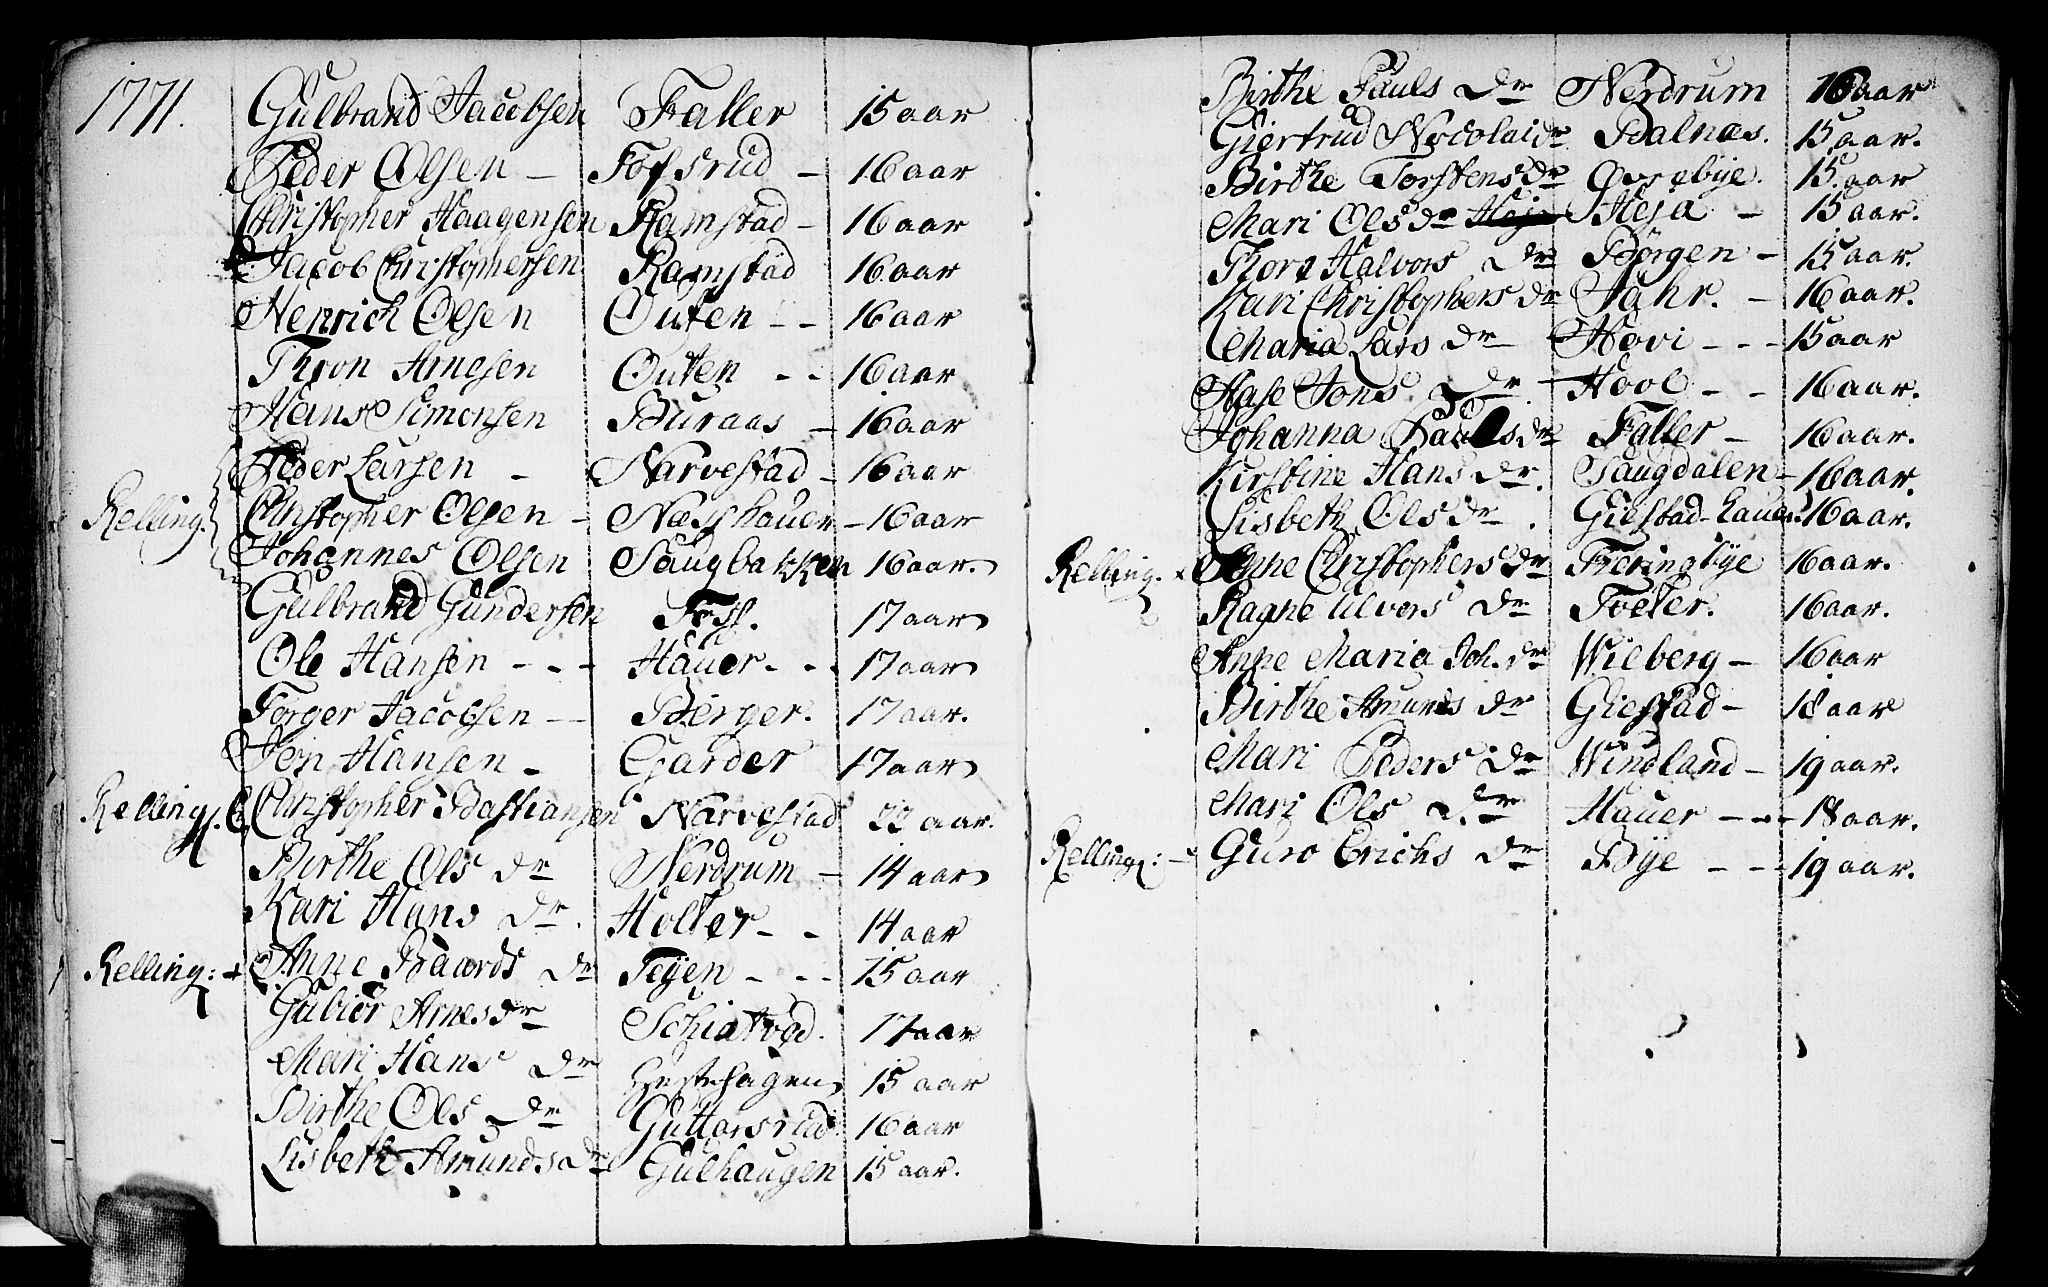 1771. Gulbrand Jacobsen Faller 15 aar
Peder Olsen - Fossrud - 16 aar
Christopher Haagensen Ramstad - 16 aar
Jacob Christophersen Ramstad 16 aar
Henrich Olsen Outen - - 16 aar
Thron Arnesen Outen - - 16 aar
Hans Simonsen Buraas - 16 aar
Peder Larsen - Narvestad - 16 aar
Relling. Christopher Olsen - Næsshauer - 16 aar
Johannes Olsen Saugbakken 16 aar.
Gulbrand Gundersen Foss. 17 aar
Ole Hansen - - - Hauer - - - 17 aar
Torger Jacobsen - - Berger. 17 aar.
Jon Hansen - Garder 17 aar
Relling. Christopher Bastiansen Narvestad 22 aar.
Birthe Ols dr Nerdrum - 14 aar
Kari Hans dr. Holter - - 14 aar
Relling: + Anne Baards dr Teyen - - - 15 aar
Gubiør Arnes dr Schiatvod. 17 aar
Mari Hans dr Hestehagen 15 aar
Birthe Ols dr Guttorsrud 16 aar
Lisbeth Amunds dr Gulhaugen 15 aar.
Birthe Pauls dr Nerdrum 16 aar
Giertrud Nicolai dr Balnæs. 15 aar.
Birthe Torstens dr Ovrebye. 15. aar
Mari Ols dr Heja - 15 aar.
Thore Halvors dr Børgen - 15 aar.
Kari Christophers dr Jahr. - 16 aar.
Maria Lars dr Hovi - - - 15 aar
Aase Jons dr. Hool - - 16 aar.
Johanna Pauls dr Faller - 16 aar.
Kirstine Hans dr. Saugdalen - 16 aar.
Lisbeth Ols dr. Giestad-hauer 16 aar.
Relling. + Anne Christophers dr Freringbye 16 aar.
Ragne Ulvors dr Toeter. 16 aar.
Anne Maria Joh. dr Wilberg - 16 aar
Birthe Amunds dr Giestad - 18 aar
Mari Peders dr Windland - 19 aar.
Mari Ols dr Hauer - - - 18 aar.
Relling: - Guro Erichs dr Bye - - - 19 aar.